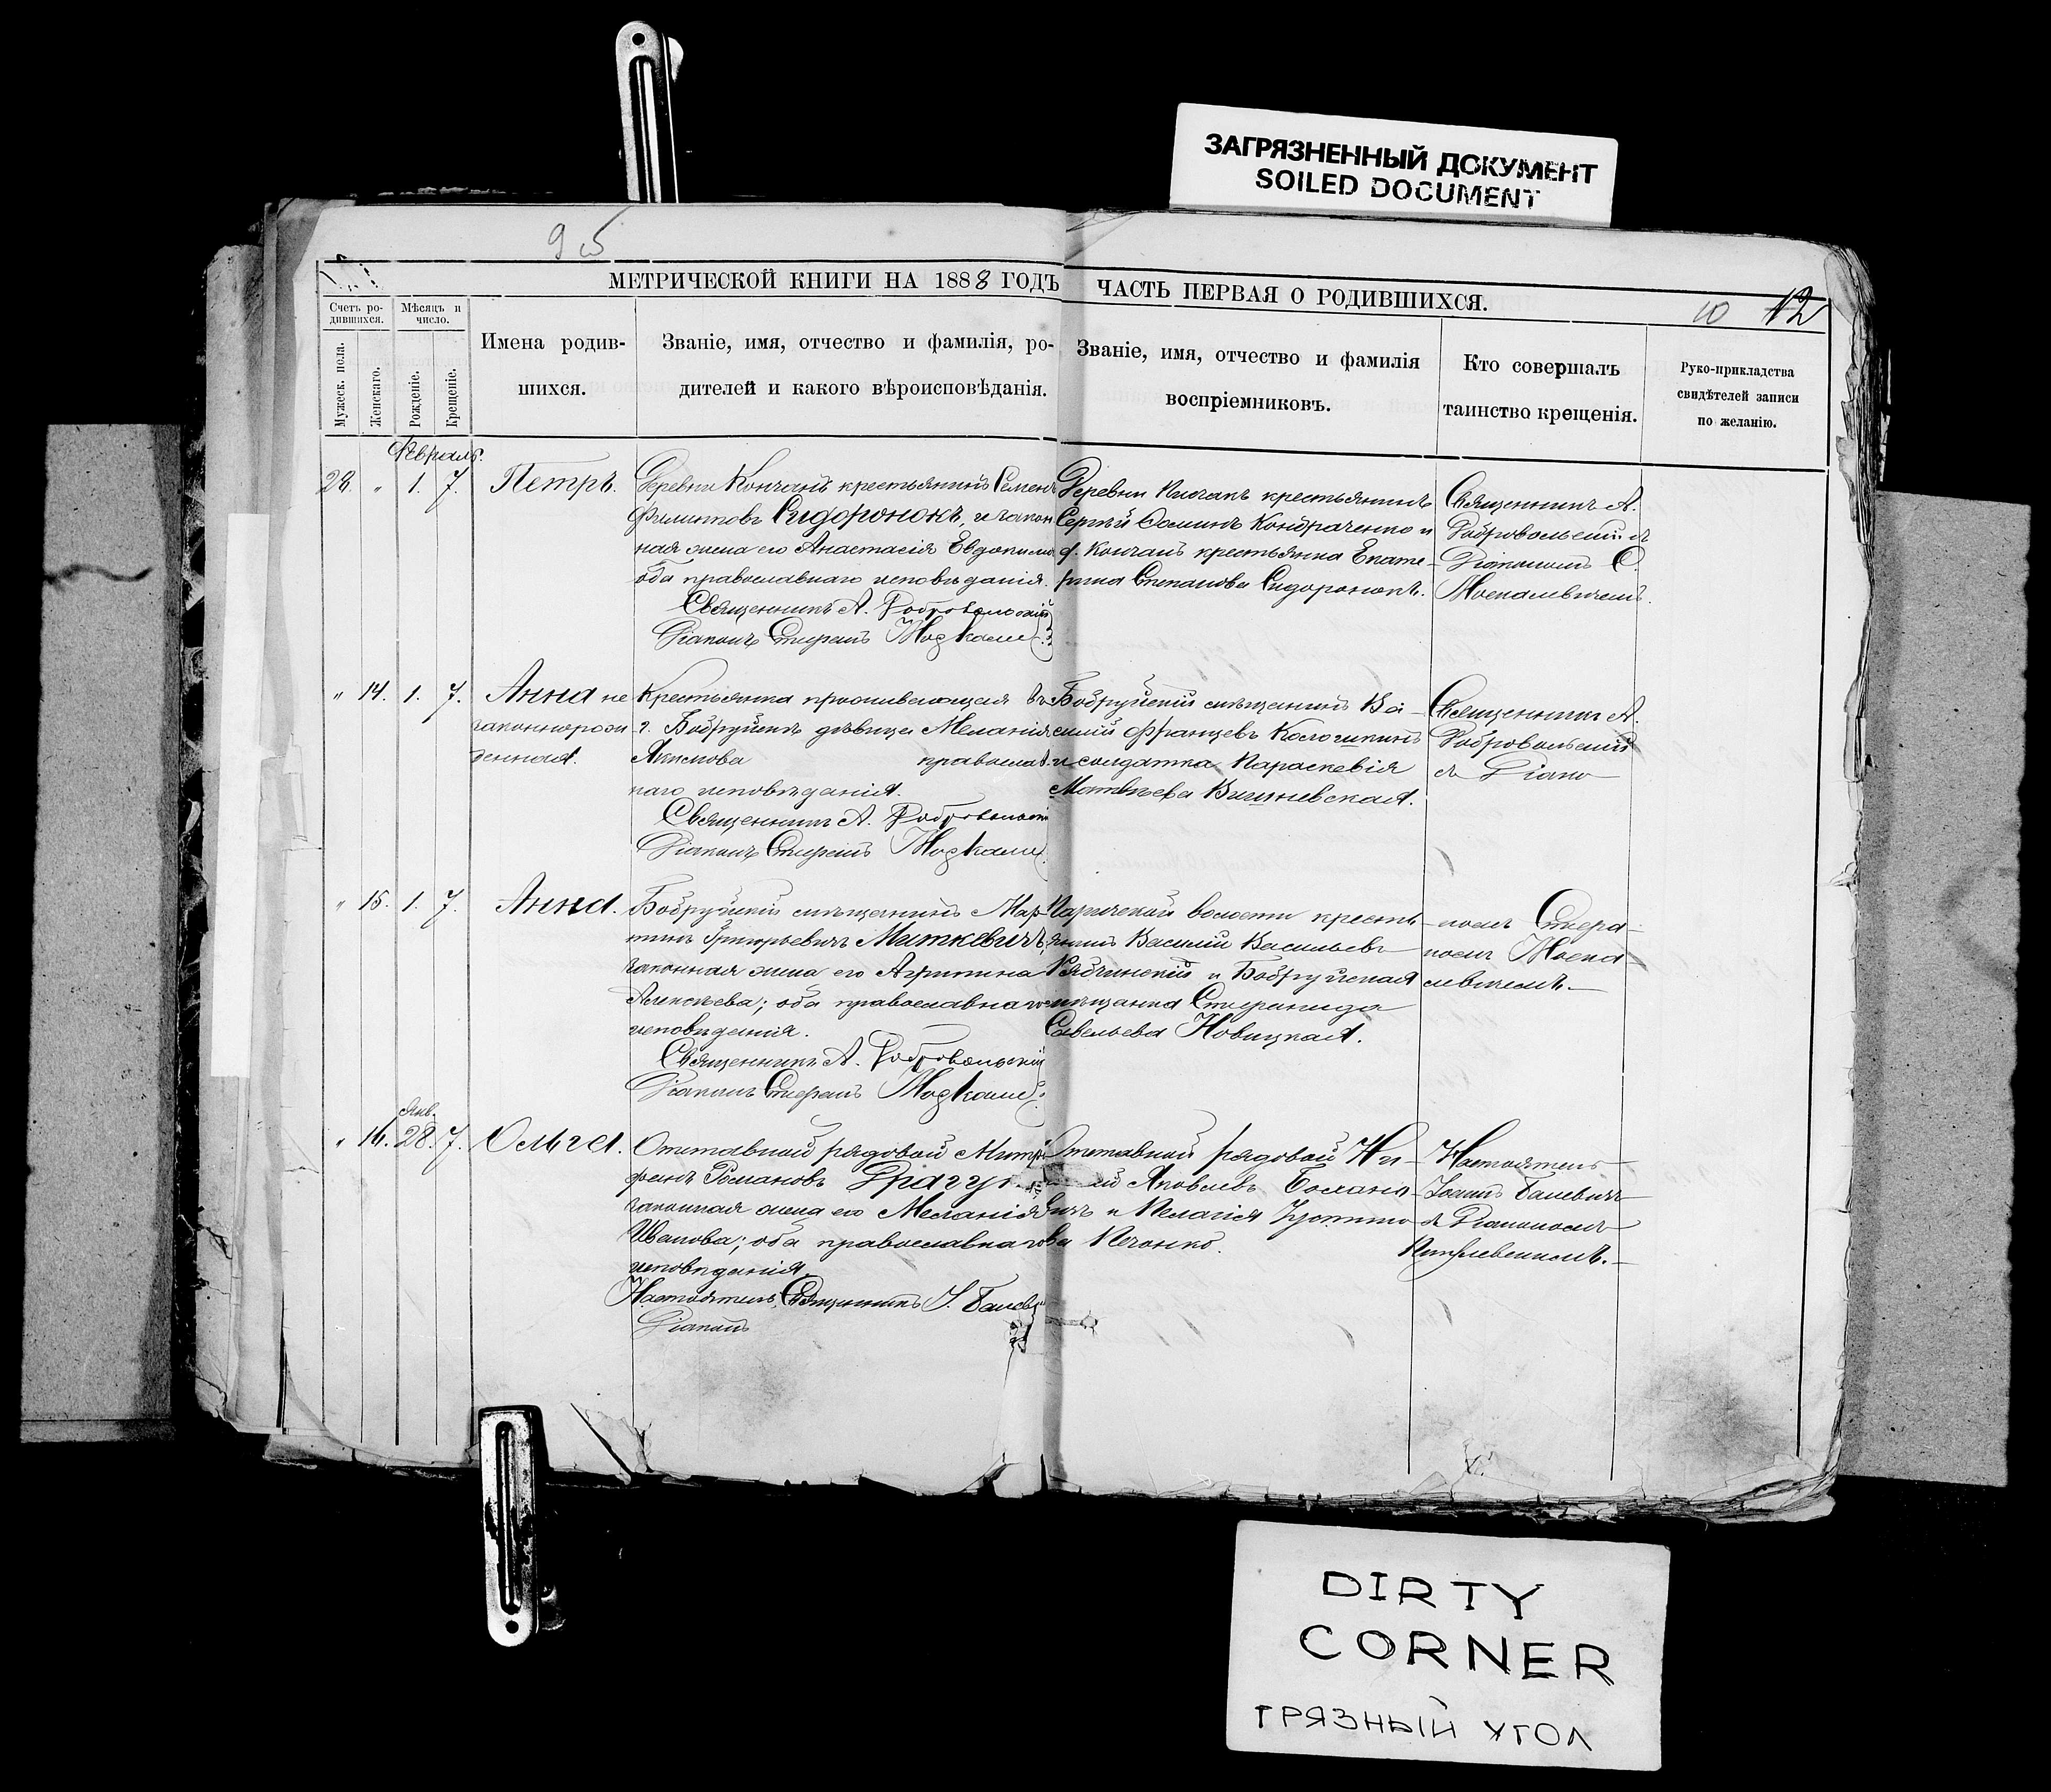 ЗАГРЯЗНЕННЫЙ ДОКУМЕНТ
SOILED DOCUMENT
95
МЕТРИЧЕСКОЙ КНИГИ НА 1888 ГОДЪ
ЧАСТЬ ПЕРВАЯ О РОДИВШИХСЯ.
10 12
Счетъ ро-
дившихся.
Мужеск. пола.
Женскаго.
Мѣсяцъ и
число.
Рожденіе.
Крещеніе.
Имена родив-
шихся.
Званіе, имя, отчество и фамилія, ро-
дителей и какого вѣроисповѣданія.
Званіе, имя, отчество и фамилія
воспріемниковъ.
Кто совершалъ
таинство крещенія.
Руко-прикладства
свидѣтелей записи
по желанію.
Февраль.
28. " 1. 7.
Петръ.
Деревни Кончанъ крестьянинъ Семенъ
Филиповъ Сидоронокъ, и закон
ная жена его Анастасія Евдокимо
оба православнаго исповѣданія.
Священникъ А. Добровольскій
Діаконъ Стефанъ
Деревни крестьянинъ
Сергѣй Фоминъ Кондраченко и
д. Кончанъ крестьянка Екате-
рина Степанова Сидоронокъ.
Священникъ А.
Добровольскій съ
Діакономъ С.
Москалевичемъ.
" 14. 1. 7.
Анна не
законнорож
денная.
Крестьянка проживающая въ
г. Бобруйскѣ дѣвица Меланія
православ
наго исповѣданія.
Священникъ А. Добровольскій
Діаконъ Стефанъ
Бобруйскій мѣщанинъ Ва-
силій Францевъ
и солдатка Параскевія
Матвѣева Вишневская.
Священникъ А.
Добровольскій
съ Діако
" 15. 1. 7.
Анна.
Бобруйскій мѣщанинъ Мар
тинъ Григорьевичъ Миткевичъ,
законная жена его Агрипина
Алексѣева; оба православнаго
исповѣданія.
Священникъ А. Добровольскій
Діаконъ Стефанъ
Паричской волости кресть
янинъ Василій Васильевъ
Рябчинскій и Бобруйская
мѣщанка Стефанида
Савельева Новицкая.
номъ Стефа-
номъ Моска
левичемъ.
Янв.
" 16. 28. 7.
Ольга.
Отставной рядовой Митро
фанъ Романовъ
законная жена его Меланія
Иванова; оба православнаго
исповѣданія.
Настоятель, Священникъ І.
Діаконъ
Отставной рядовой Ни-
Яковлевъ
и Пелагія Устино
ва
Настоятель
Іоаннъ
съ Діакономъ
DIRTY
CORNER
ГРЯЗНЫЙ УГОЛ